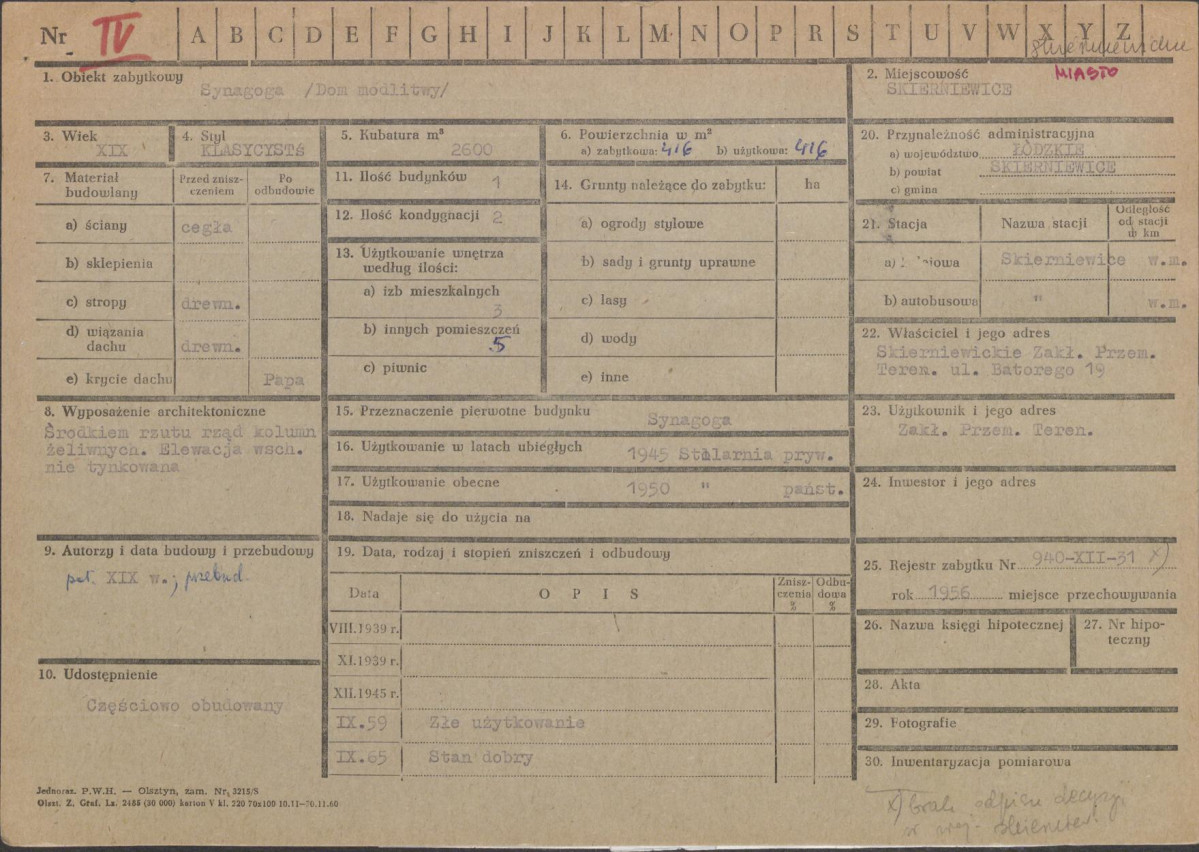 Nr IV A B C D E F G H I J K L M N O P R S T U V W X Y Z
1. Obiekt zabytkowy
Synagoga /Dom modlitwy/
2. Miejscowość MIASTO
SKIERNIEWICE
3. Wiek
XIX
4. Styl
KLASYCYSTŚ
5. Kubatura m³
2600
6. Powierzchnia w m²
a) zabytkowa: 416 b) użytkowa: 416
7. Materiał budowlany
Przed zniszczeniem
Po odbudowie
a) ściany cegła
b) sklepienia
c) stropy drewn.
d) wiązania dachu drewn.
e) krycie dachu Papa
8. Wyposażenie architektoniczne
Środkiem rzutu rząd kolumn
żeliwnych. Elewacja wsch.
nie tynkowana
9. Autorzy i data budowy i przebudowy
poł. XIX w.; przebud.
10. Udostępnienie
Częściowo obudowany
11. Ilość budynków 1
12. Ilość kondygnacji 2
13. Użytkowanie wnętrza
według ilości:
a) izb mieszkalnych
3
b) innych pomieszczeń
5
c) piwnic
14. Grunty należące do zabytku: ha
a) ogrody stylowe
b) sady i grunty uprawne
c) lasy
d) wody
e) inne
15. Przeznaczenie pierwotne budynku
Synagoga
16. Użytkowanie w latach ubiegłych
1945 Stolarnia pryw.
17. Użytkowanie obecne
1950 " państ.
18. Nadaje się do użycia na
19. Data, rodzaj i stopień zniszczeń i odbudowy
Data OPIS Zniszczenia % Odbudowa %
VIII.1939 r.
XI.1939 r.
XII.1945 r.
IX.59 Złe użytkowanie
IX.65 Stan dobry
20. Przynależność administracyjna
a) województwo ŁÓDZKIE
b) powiat SKIERNIEWICE
c) gmina
21. Stacja Nazwa stacji Odległość od stacji w km
a) Skierniewice w.m.
b) autobusowa " w.m.
22. Właściciel i jego adres
Skierniewickie Zakł. Przem.
Teren. ul. Batorego 19
23. Użytkownik i jego adres
Zakł. Przem. Teren.
24. Inwestor i jego adres
25. Rejestr zabytku Nr 940-XII-31 x)
rok 1956 miejsce przechowywania
26. Nazwa księgi hipotecznej
27. Nr hipoteczny
28. Akta
29. Fotografie
30. Inwentaryzacja pomiarowa
x) brak odpisu decyzji
Jednoraz. P.W.H. — Olsztyn, zam. Nr, 3215/S
Olszt. Z. Graf. Lz. 2455 (30 000) karton V kl. 220 70x100 10.11—30.11.60